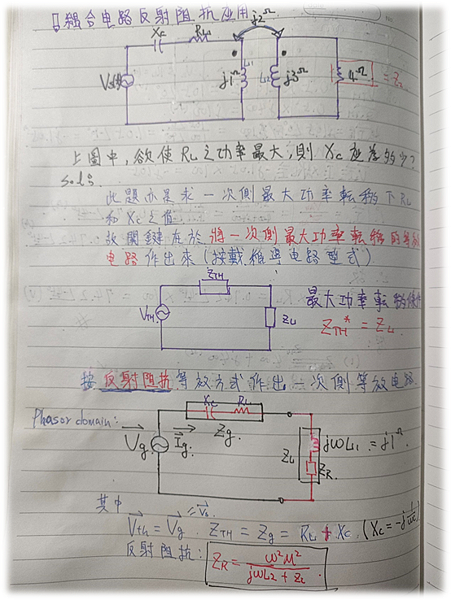 耦合电路反射阻抗应用
j2Ω
Xc RL
Vs(t) j1Ω L1 L2 j3Ω 4Ω = ZL
上圖中,欲使 RL 之功率最大,則 Xc 應為多少?
sol:
此題亦是求一次側最大功率転移下 RL
和 Xc 之值.
故関鍵在於將一次側最大功率転移的等效
电路作出來(接載維寧电路型式)
ZTH
VTH ZL
最大功率転移條件
ZTH* = ZL
按反射阻抗等效方式作出一次側等效电路
Phasor domain:
Xc RL
Vg Ig Zg. ZL jωL1 = j1Ω
ZR.
其中 = Vs
Vth = Vg. ZTH = Zg = RL + Xc. (Xc = -j 1/ωc)
反射阻抗: ZR = ω²M² / jωL2 + ZL